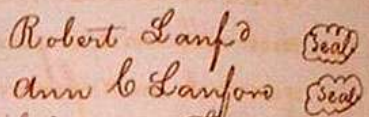 Robert Lanfd Seal
Ann C Lanford Seal